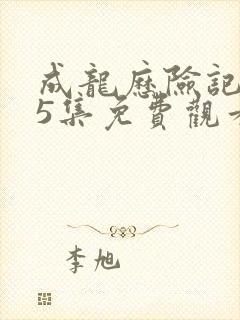 成龍歷險記
5集免費觀
李旭